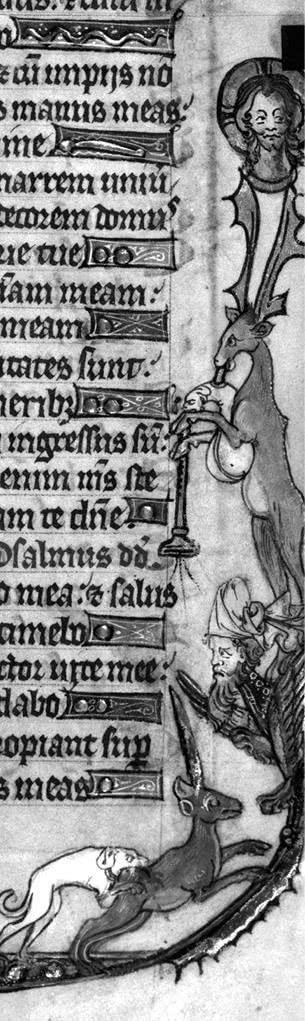 ⁊ cū impijs nō
s manus meas.
ine
narrem uniū
decorem domus
rie tue
īam meam:
meam
itates sunt.
neribꝫ
ingressus sū:
enim ms̄ ste
am te dn̄e.
Psalmus dd.
o mea: ⁊ salus
timebo
ctor uite mee:
dabo
ropiant suꝑ
s meas